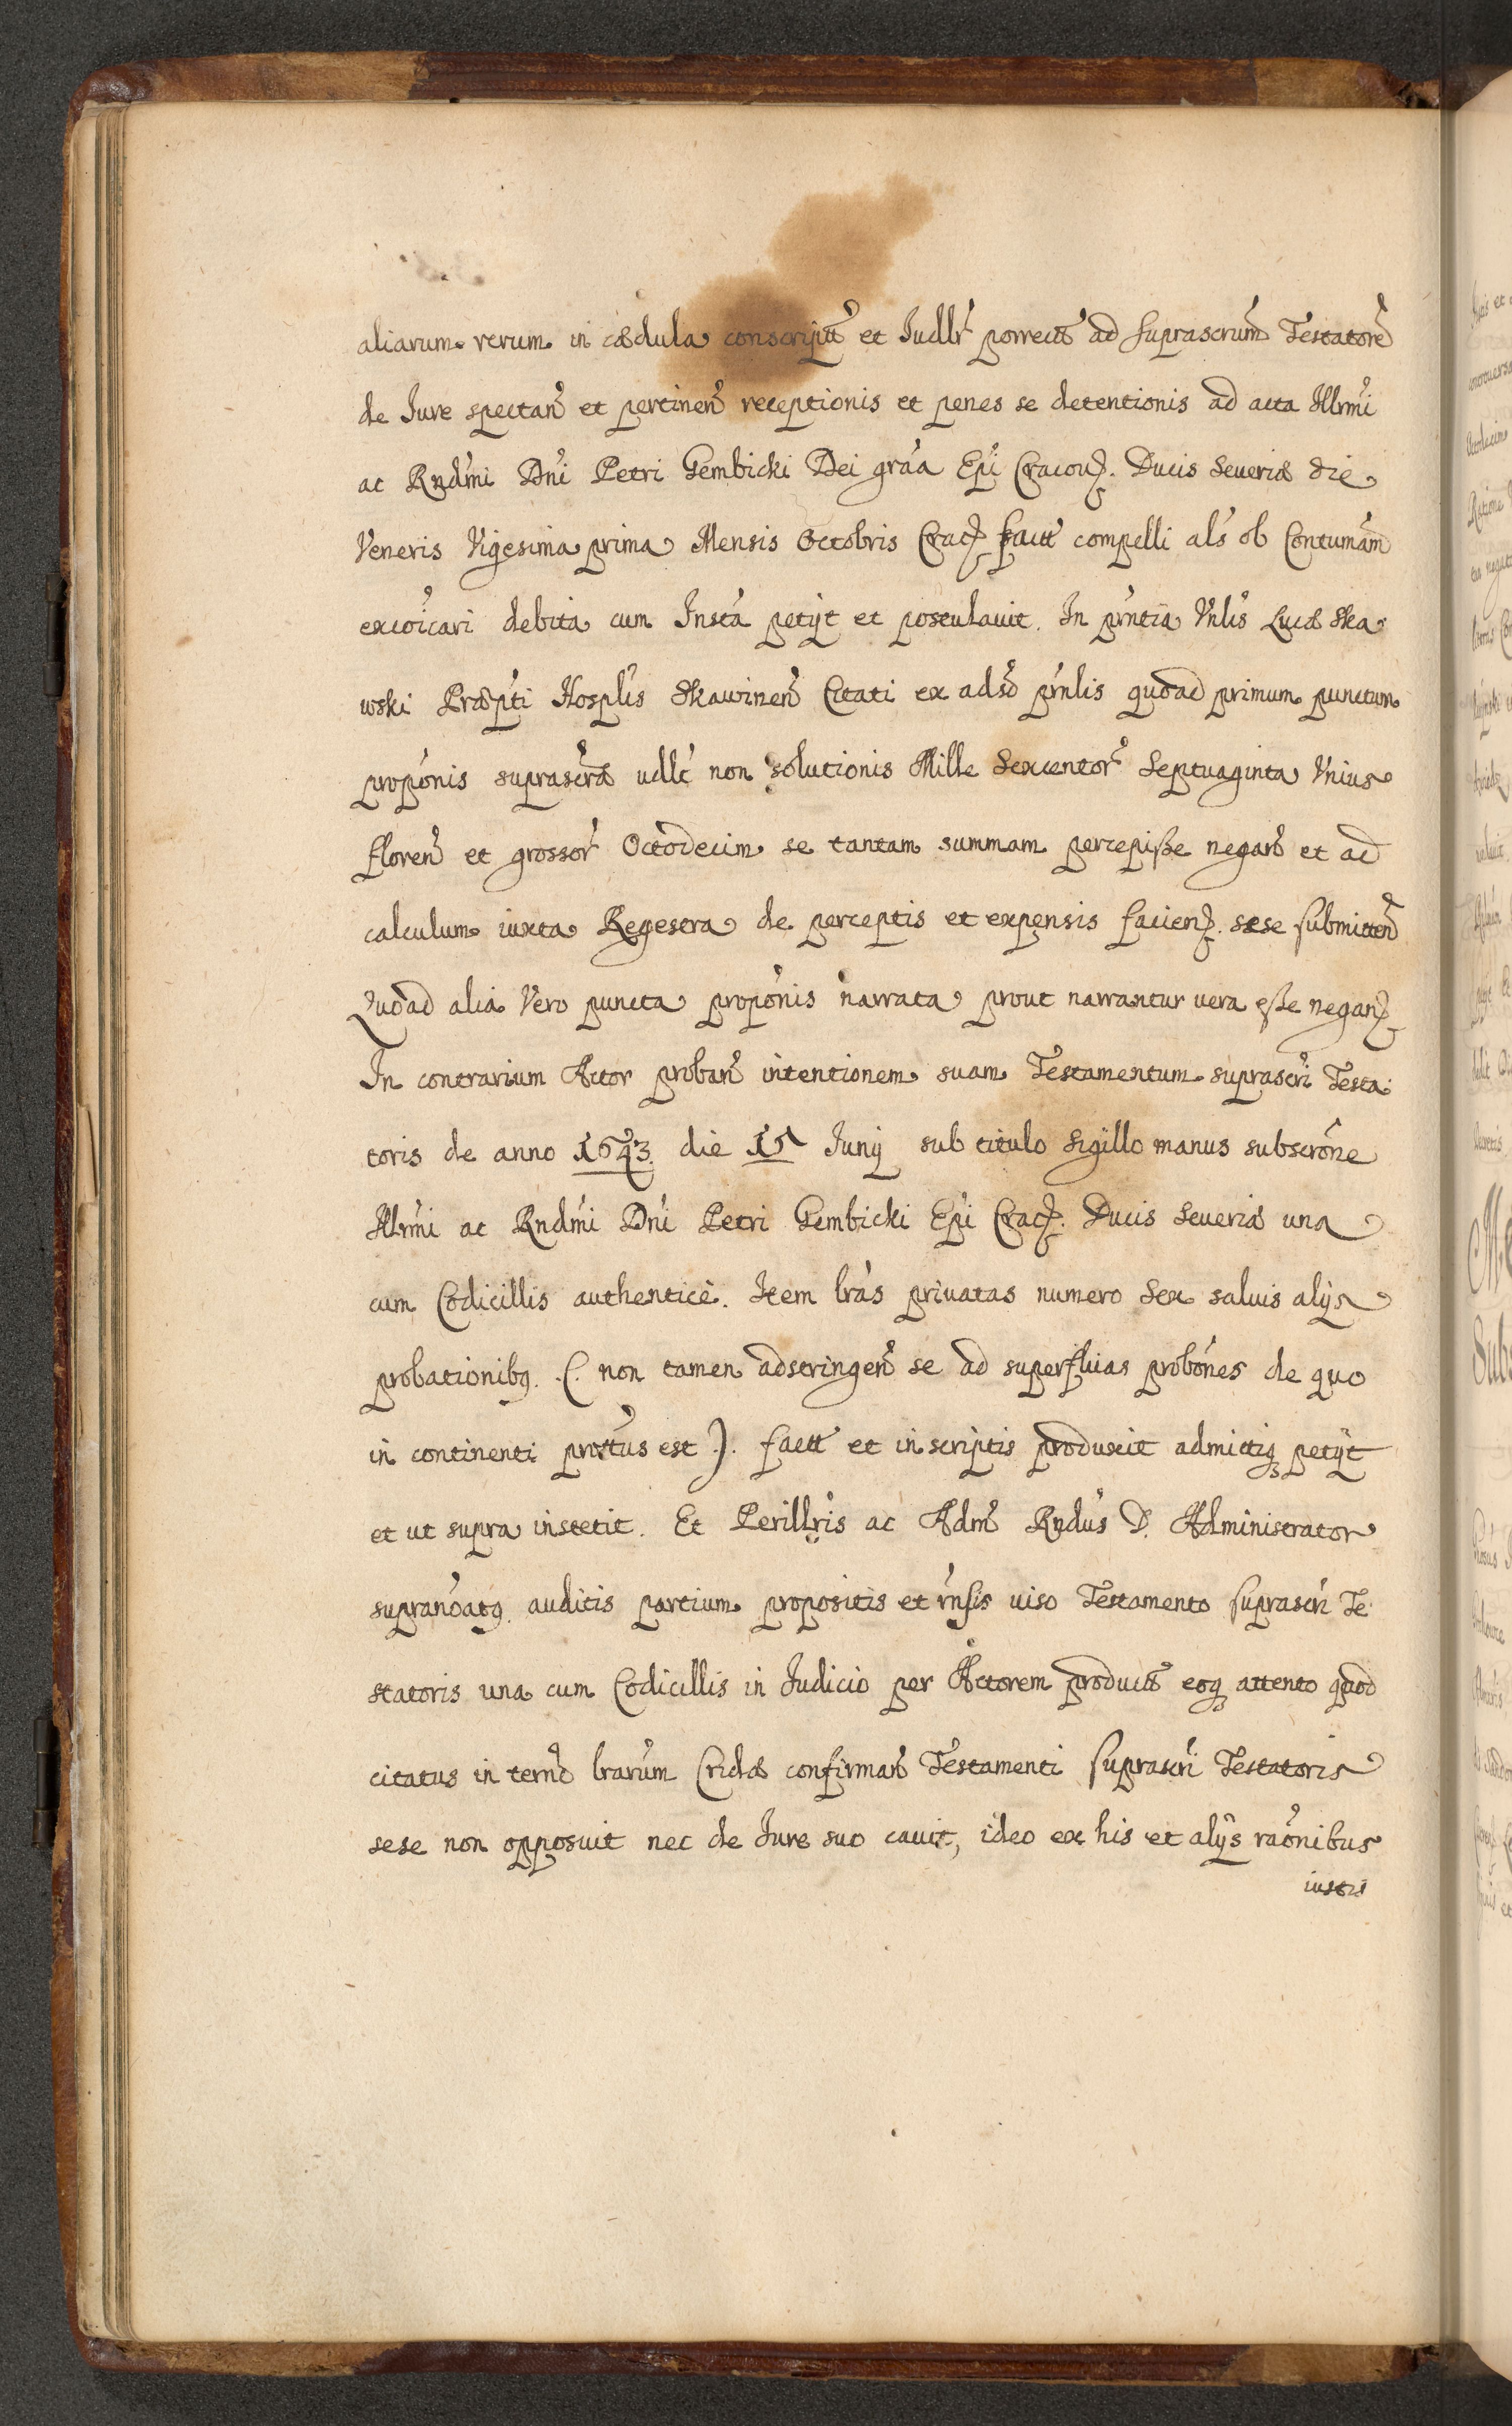 aliarum rerum in cædula conscript et Iudlr porrect ad suprascrum Testatore
de Iure spectan et pertinen receptionis et penes se detentionis ad acta Illrmi
ac Rndmi Dni Petri Gembicki Dei graa Epi Cracou. Ducis Seueriæ die
Veneris Vigesima prima Mensis Octobris Crac fact compelli als ob Contumam
excoicari debita cum Insta petyt et postulauit. In pntia Vnlis Lucæ Ska
wski Præpti Hosplis Skawinen Citati ex adso pnlis quoad primum punctum
proponis suprascræ udlt non solutionis Mille Sexcentor Septuaginta Vnius
floren et grossor Octodecim se tantam summam percepisse negan et ad
calculum iuxta Regestra de perceptis et expensis facien. sese submitten
Quoad alia Vero puncta proponis narrata prout narrantur vera esse negan
In contrarium Actor proban intentionem suam Testamentum suprascri Testa
toris de anno 1643. die 15 Iunij sub titulo Sigillo manus subscrone
Illrmi ac Rndmi Dni Petri Gembicki Epi Crac. Ducis Seueriæ una
cum Codicillis authentice. Item lras priuatas numero Sex saluis alijs
probationibq. (. non tamen adstringen se ad superfluas probones de quo
in continenti prottus est ). fact et in scriptis produxit admittiq petijt
et ut supra institit. Et Perillris ac Adm Rndus D. Administrator
supranoatq. auditis partium propositis et rnsis uiso Testamento suprascri Te
statoris una cum Codicillis in Iudicio per Actorem product eoq attento quod
citatus in termo lrarum Cridæ confirman Testamenti suprascri Testatoris
sese non opposuit nec de Iure suo cauit, ideo ex his et alijs raonibus
iustis